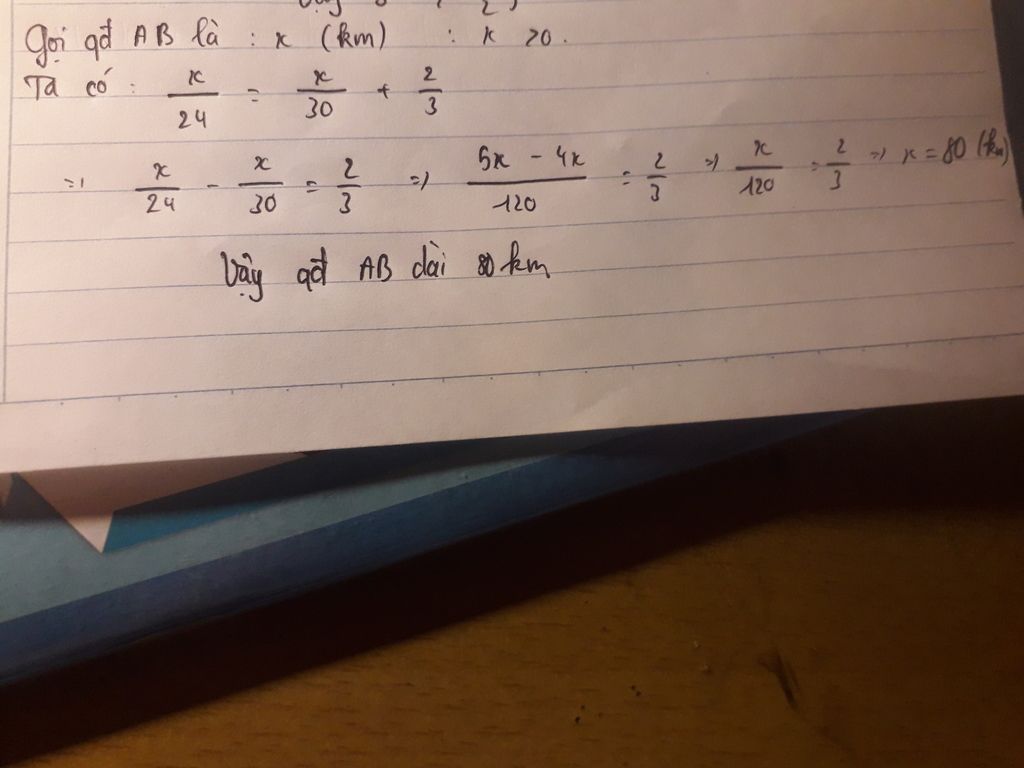 Gọi qđ AB là : x (km) : x > 0.
Ta có : x/24 = x/30 + 2/3
=> x/24 - x/30 = 2/3 => (5x - 4x)/120 = 2/3 => x/120 = 2/3 => x = 80 (km)
Vậy qđ AB dài 80 km